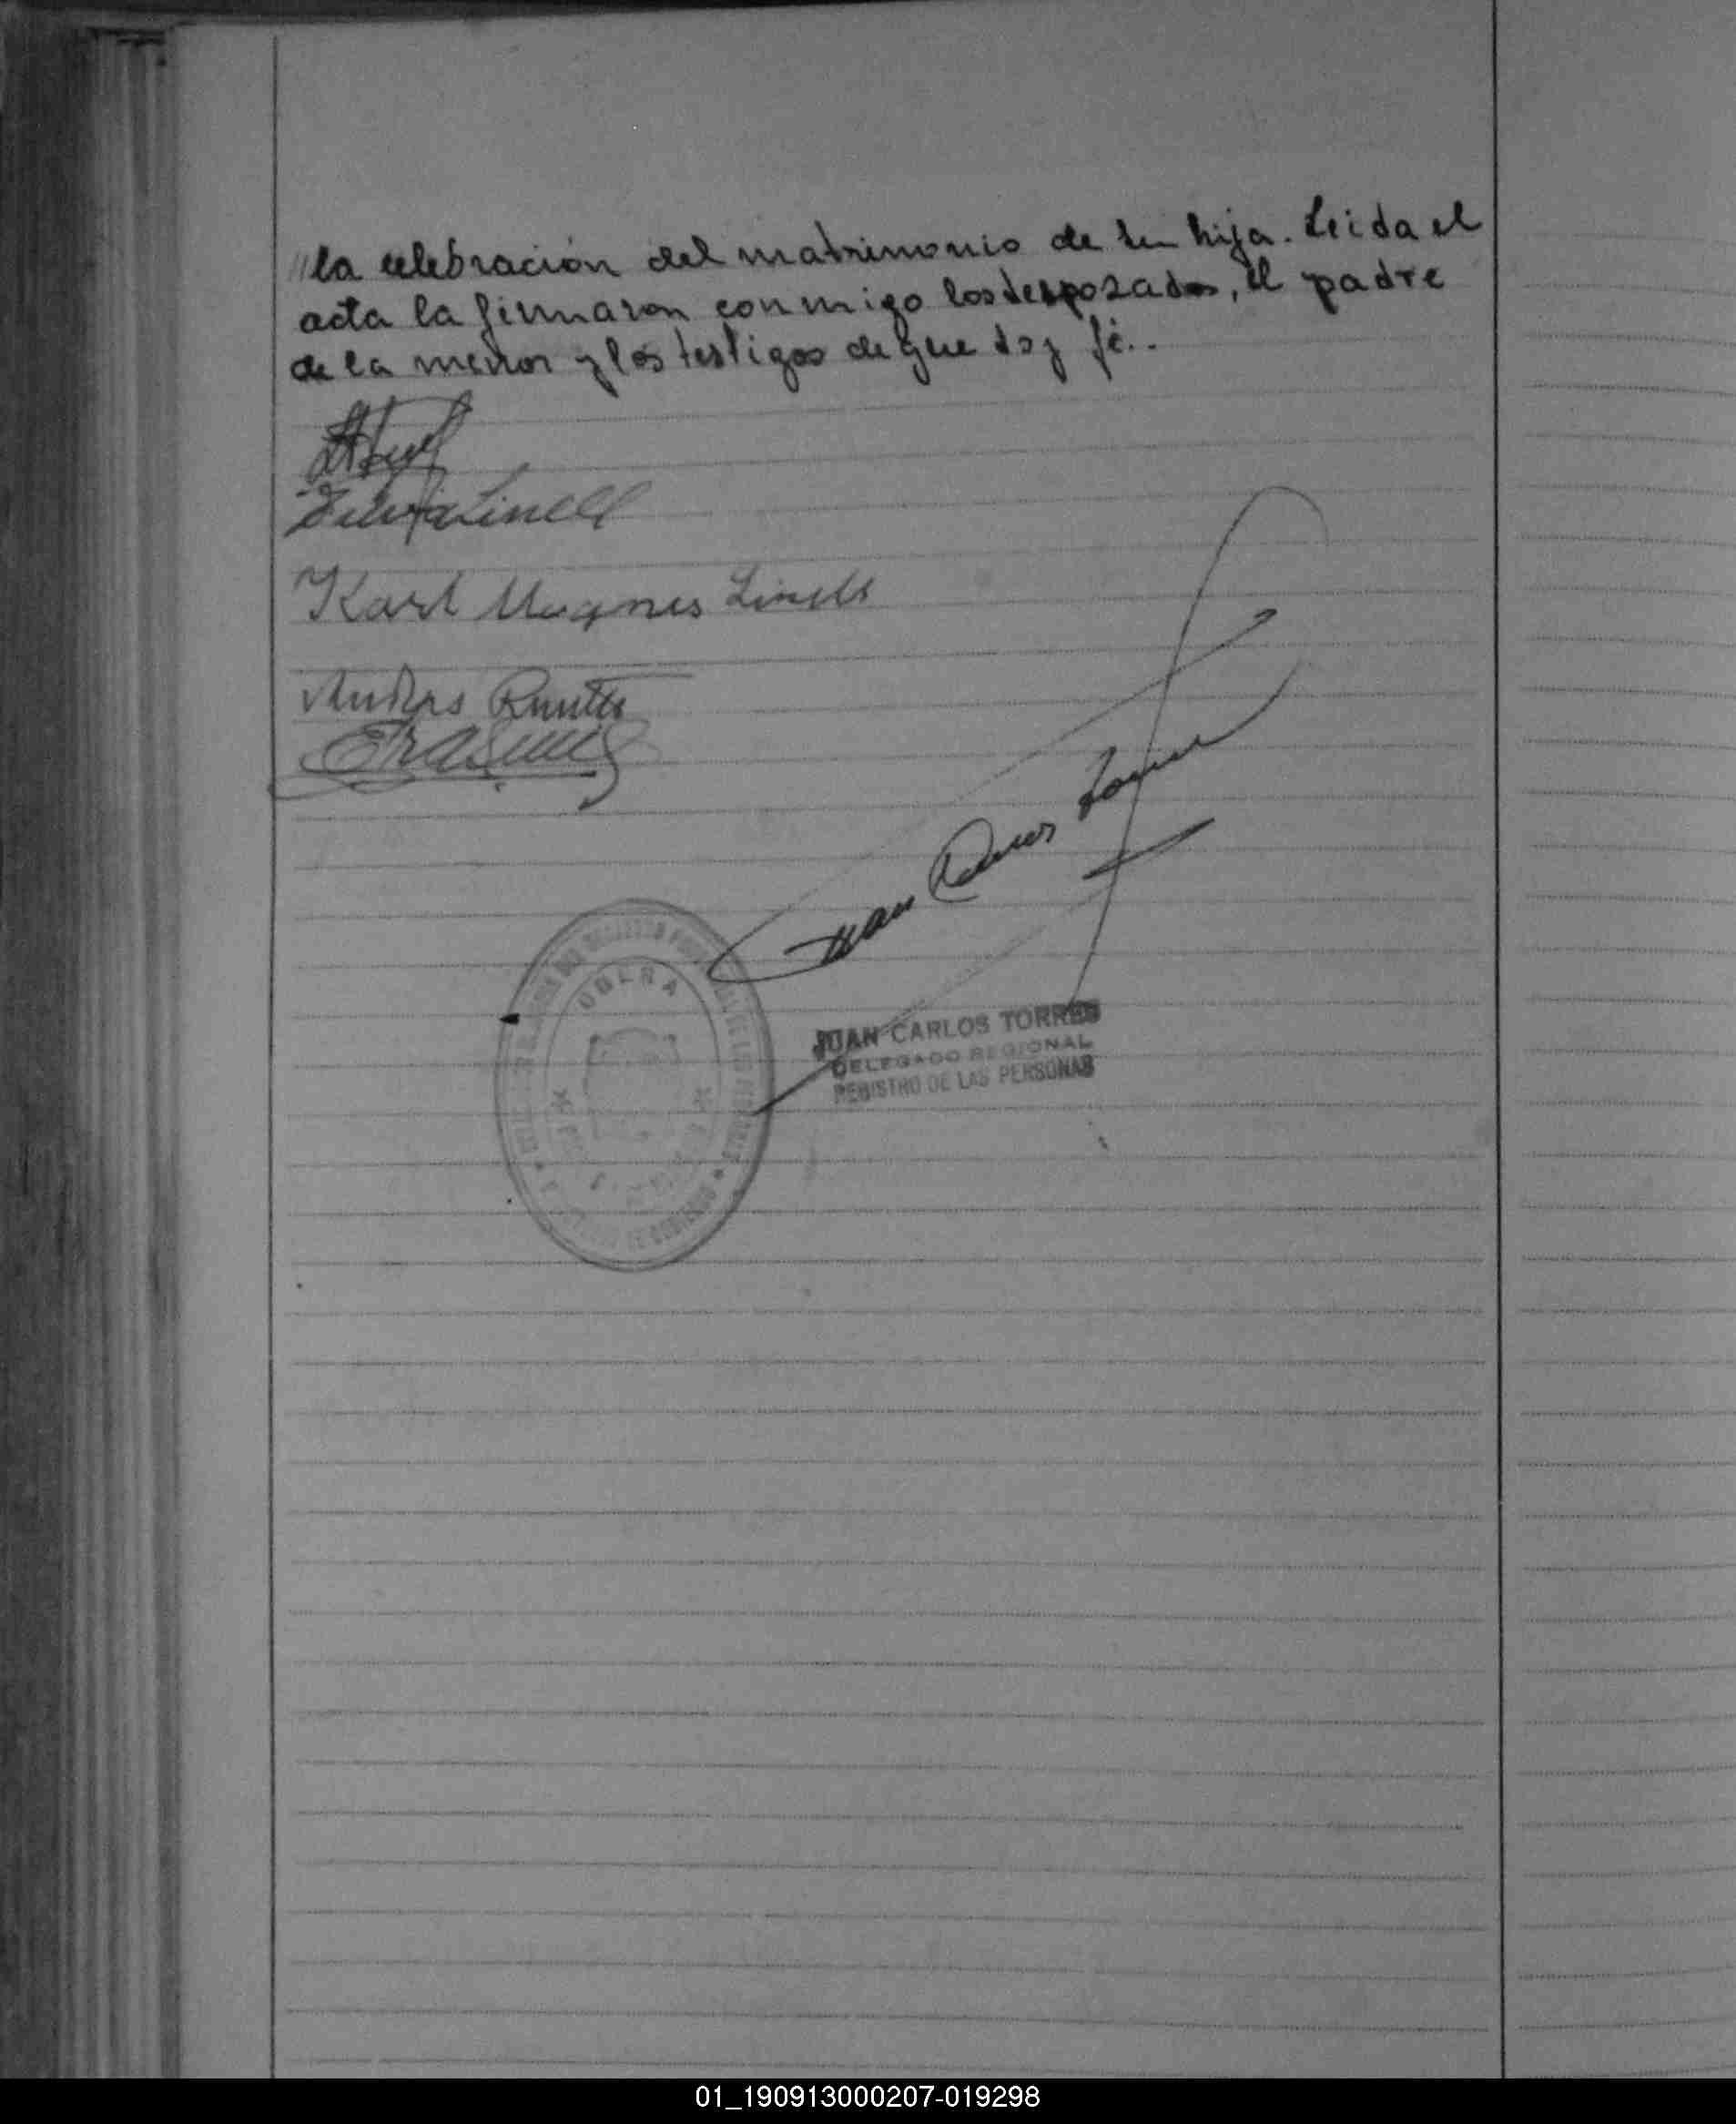 "la celebración del matrimonio de su hija. Leida el
acta la firmaron conmigo los desposados, el padre
de la menor y los testigos de que doy fé..
Silvia Linell
Karl Magnus Linell
Anders
Erasmus
Juan Carlos Torres
OBERA
JUAN CARLOS TORRES
DELEGADO REGIONAL
REGISTRO DE LAS PERSONAS
01_190913000207-019298